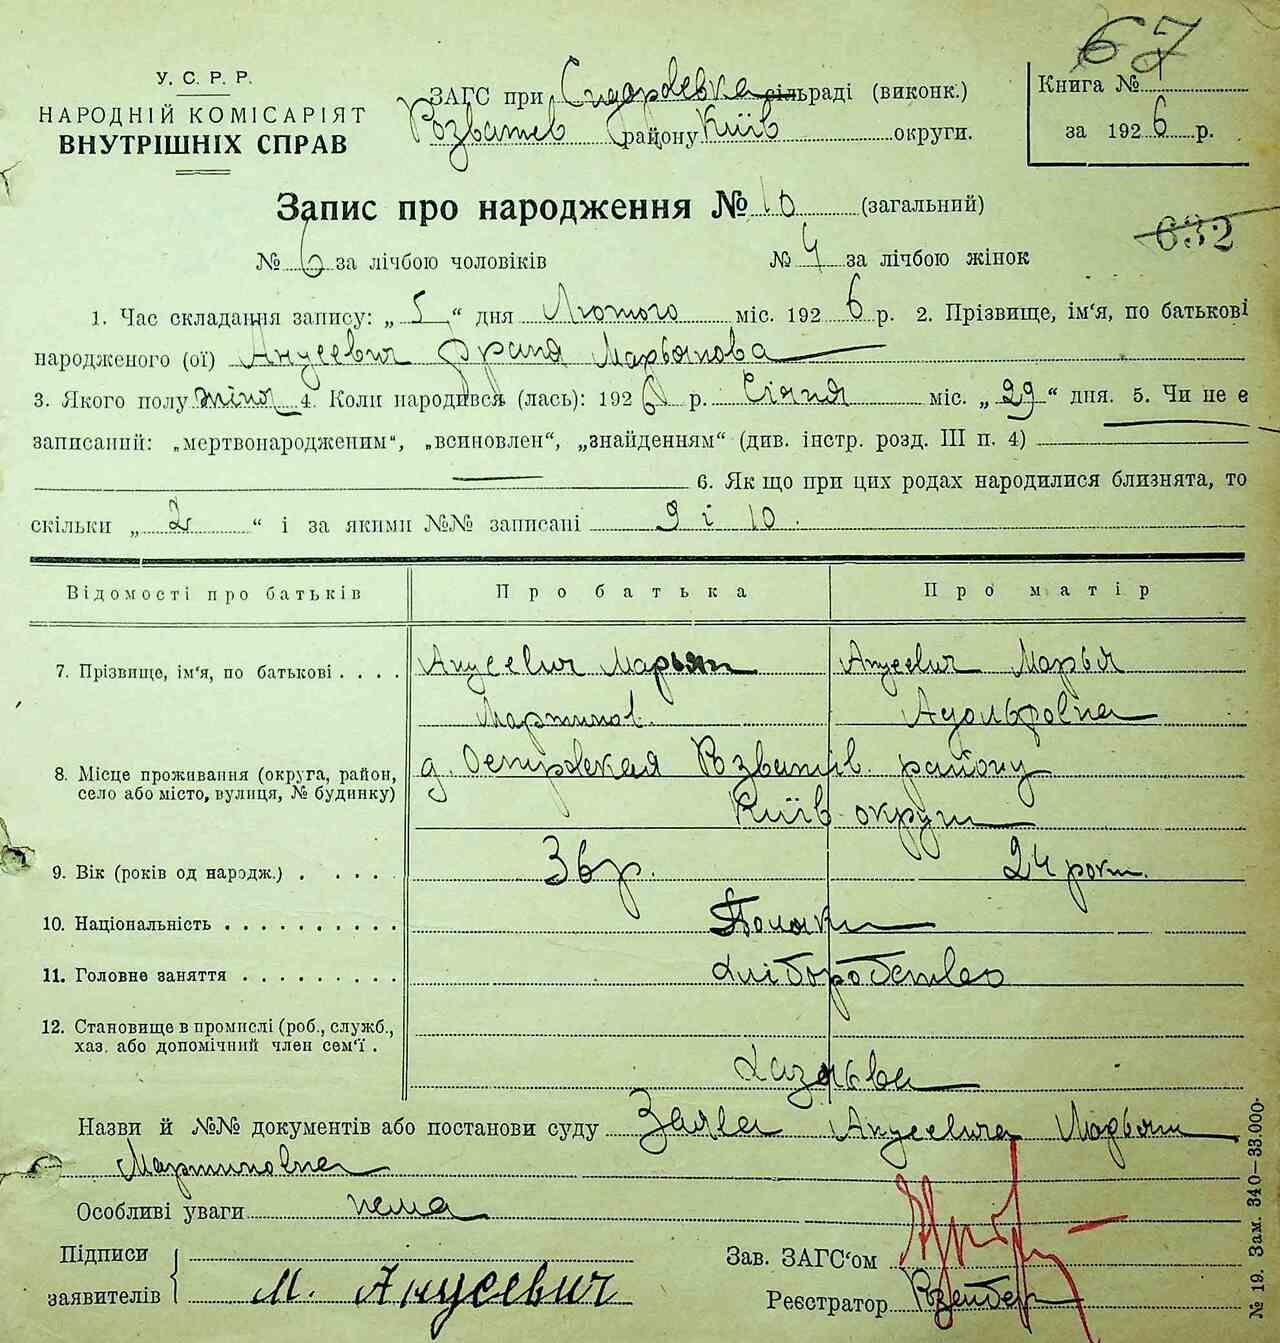 67
У. С. Р. Р.
НАРОДНІЙ КОМІСАРІЯТ
ВНУТРІШНІХ СПРАВ
ЗАГС при Сидоровка сільраді (виконк.)
Розважев району Київ округи.
Книга №
за 1926 р.
Запис про народження № 10 (загальний)
632
№ 6 за лічбою чоловіків № 4 за лічбою жінок
1. Час складання запису: „5“ дня Лютого міс. 1926 р. 2. Прізвище, ім'я, по батькові
народженого (ої) Янусевич Франя Марьянова
3. Якого полу жіно 4. Коли народився (лась): 1926 р. Січня міс. „29“ дня. 5. Чи не є
записаний: „мертвонародженим“, „всиновлен“, „знайденням“ (див. інстр. розд. III п. 4)
6. Як що при цих родах народилися близнята, то
скільки „2“ і за якими №№ записані 9 і 10.
Відомості про батьків Про батька Про матір
7. Прізвище, ім'я, по батькові . . . . Янусевич Марьян Янусевич Марья
Мартинов. Адольфовна
8. Місце проживання (округа, район,
село або місто, вулиця, № будинку)
д. Островская Розважів. району
Київ округи
9. Вік (років од народж.) . . . . . 36р. 24 роки.
10. Національність . . . . . . . . . . Поляки
11. Головне заняття . . . . . . . . . Хліборобство
12. Становище в промислі (роб., служб.,
хаз. або допомічний член сем'ї .
Хазяьва
Назви й №№ документів або постанови суду Заява Янусевича Марьяна
Мартиновна
Особливі уваги нема
Підписи
заявителів М. Янусевич
Зав. ЗАГС'ом
Реєстратор
№ 19. Зам. 340—33.000·